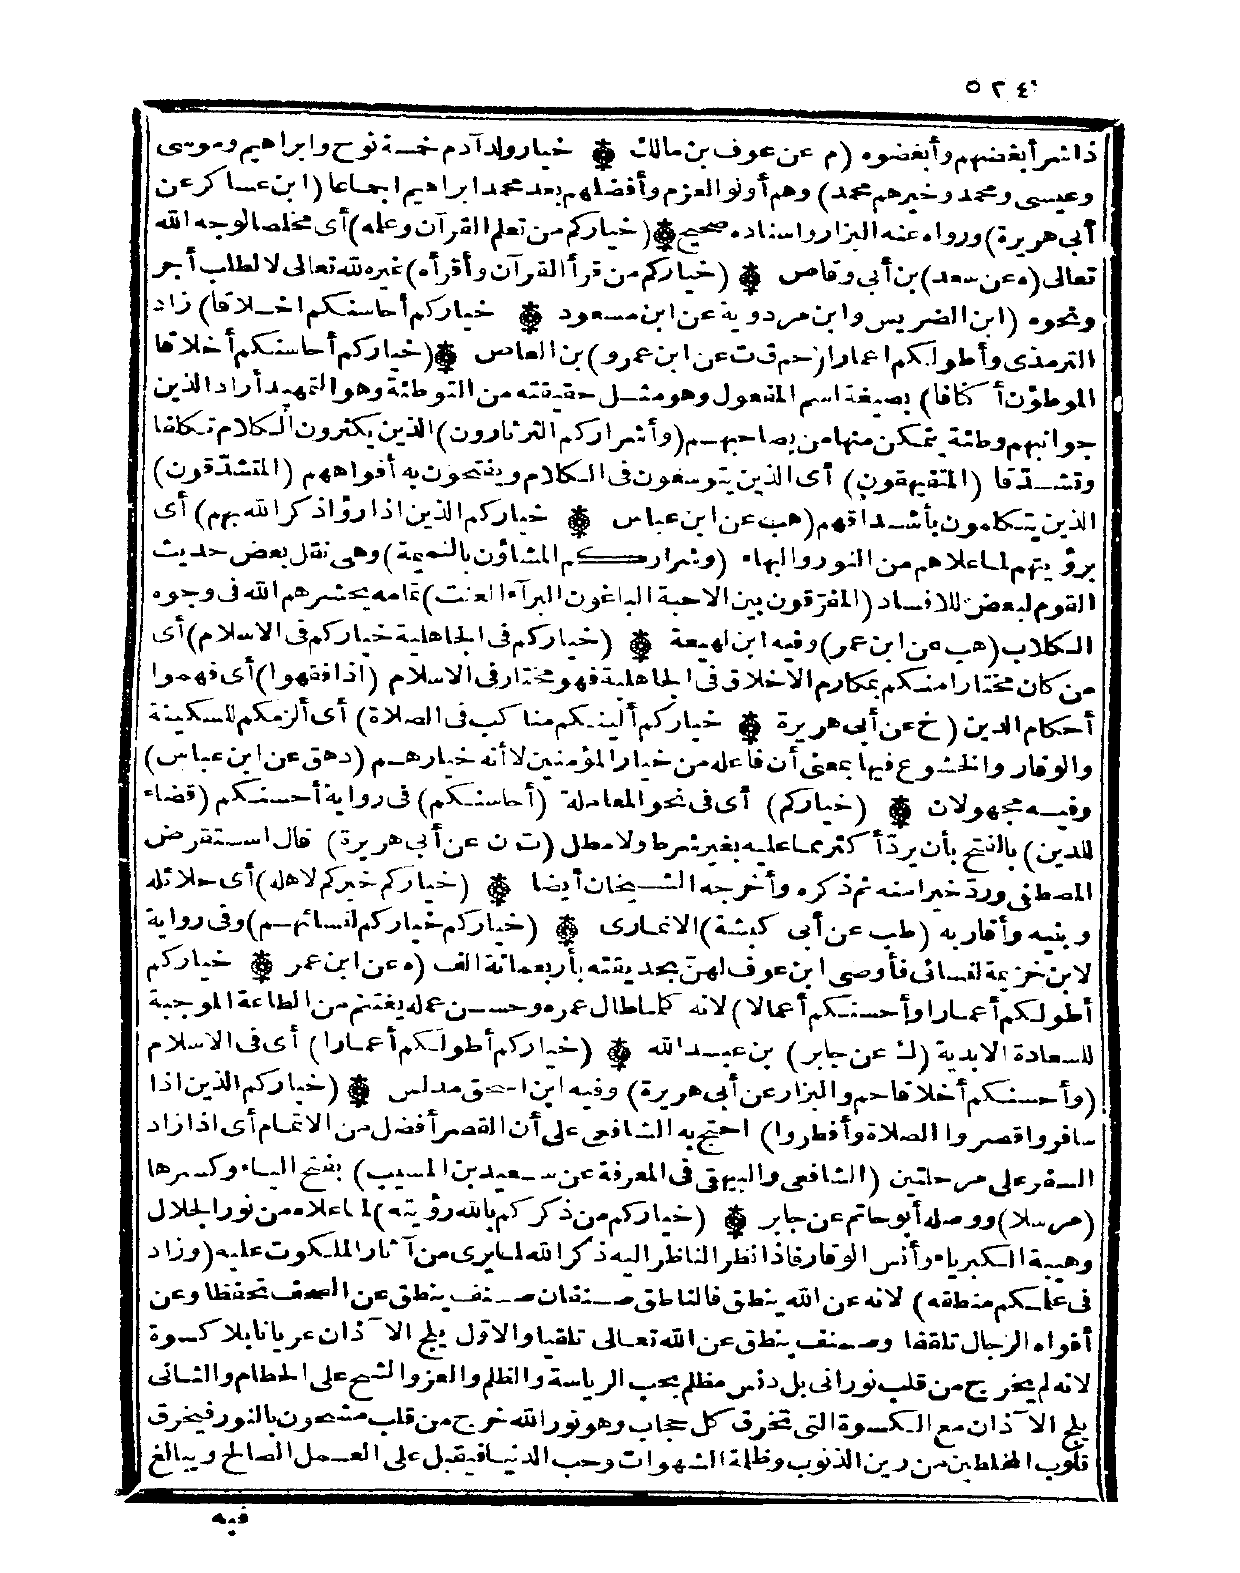 ٥٢٤
ذا شر أبغضهم وأبغضوه (م عن عوف بن مالك ۞ خيار ولد آدم خمسة نوح وابراهيم وموسى
وعيسى ومحمد وخيرهم محمد) وهم أولو العزم وأفضلهم بعد محمد ابراهيم اجماعا (ابن عساكر عن
أبى هريرة) ورواه عنه البزار واسناده صحيح ۞ (خياركم من تعلم القرآن وعلمه) أى مخلصا لوجه الله
تعالى (ه عن سعد) بن أبى وقاص ۞ (خياركم من قرأ القرآن وأقرأه) غيره لله تعالى لا لطلب أجر
ونحوه (ابن الضريس وابن مردوية عن ابن مسعود ۞ خياركم أحاسنكم اخلاقا) زاد
الترمذى وأطولكم اعمارا (حم ق ت عن ابن عمرو) بن العاص ۞ (خياركم أحاسنكم أخلاقا
الموطؤن أكنافا) بصيغة اسم المفعول وهو مثل حقيقته من التوطئة وهو التمهيد أراد الذين
جوانبهم وطئة يتمكن منها من يصاحبهم (وأشراركم الثرثارون) الذين يكثرون الكلام تكلفا
وتشدقا (المتفيهقون) أى الذين يتوسعون فى الكلام ويفتحون به أفواههم (المتشدّقون)
الذين يتكلمون بأشداقهم (هب عن ابن عباس ۞ خياركم الذين اذا رؤا ذكر الله بهم) أى
برؤيتهم لما علاهم من النور والبهاء (وشراركم المشاؤن بالنميمة) وهى نقل بعض حديث
القوم لبعض للافساد (المفرّقون بين الاحبة الباغون البرآء العنت) تمامه يحشرهم الله فى وجوه
الكلاب (هب عن ابن عمر) وفيه ابن لهيعة ۞ (خياركم فى الجاهلية خياركم فى الاسلام) أى
من كان مختارا منكم بمكارم الاخلاق فى الجاهلية فهو مختار فى الاسلام (اذا فقهوا) أى فهموا
أحكام الدين (خ عن أبى هريرة ۞ خياركم ألينكم مناكب فى الصلاة) أى ألزمكم للسكينة
والوقار والخشوع فيها بمعنى أن فاعله من خيار المؤمنين لا أنه خيارهم (د هق عن ابن عباس)
وفيه مجهولان ۞ (خياركم) أى فى نحو المعاملة (أحاسنكم) فى رواية أحسنكم (قضاء
للدين) بالفتح بأن يردّ أكثر مما عليه بغير شرط ولا مطل (ت ن عن أبى هريرة) قال استقرض
المصطفى وردّ خيرا منه ثم ذكره وأخرجه الشيخان أيضا ۞ (خياركم خيركم لاهله) أى حلائله
وبنيه وأقاربه (طب عن أبى كبشة) الانمارى ۞ (خياركم خياركم لنسائهم) وفى رواية
لابن خزيمة لنسائى فأوصى ابن عوف لهنّ بحديقته بأربعمائة الف (ه عن ابن عمر ۞ خياركم
أطولكم أعمارا وأحسنكم أعمالا) لانه كلما طال عمره وحسن عمله يغتنم من الطاعة الموجبة
للسعادة الابدية (ك عن جابر) بن عبد الله ۞ (خياركم أطولكم أعمارا) أى فى الاسلام
(وأحسنكم أخلاقا حم والبزار عن أبى هريرة) وفيه ابن اسحق مدلس ۞ (خياركم الذين اذا
سافروا قصروا الصلاة وأفطروا) احتج به الشافعى على أن القصر أفضل من الاتمام أى اذا زاد
السفر على مرحلتين (الشافعى والبيهقى فى المعرفة عن سعيد بن المسيب) بفتح الياء وكسرها
(مرسلا) ووصله أبو حاتم عن جابر ۞ (خياركم من ذكركم بالله رؤيته) لما علاه من نور الجلال
وهيبة الكبرياء وأنس الوقار فاذا نظر الناظر اليه ذكر الله لما يرى من آثار الملكوت عليه (وزاد
فى علمكم منطقه) لانه عن الله ينطق فالناطق صنفان صنف ينطق عن الصحف تحفظا وعن
أفواه الرجال تلقفا وصنف ينطق عن الله تعالى تلقيا والاوّل يلج الآذان عريانا بلا كسوة
لانه لم يخرج من قلب نورانى بل دنس مظلم بحب الرياسة والظلم والعز والشح على الحطام والثانى
يلج الآذان مع الكسوة التى تخرق كل حجاب وهو نور الله خرج من قلب مشحون بالنور فيخرق
قلوب المخلطين من رين الذنوب وظلمة الشهوات وحب الدنيا فيقبل على العمل الصالح ويبالغ
فيه